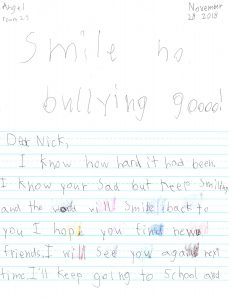 Angel
room 23
November
28 2018
Smile no
bullying goood!
Dear Nick,
I know how hard it had been
I know your Sad but keep Smiling
and the world will Smile back to
you I hope you find new
friends. I will See you again next
time. I'll keep going to School and